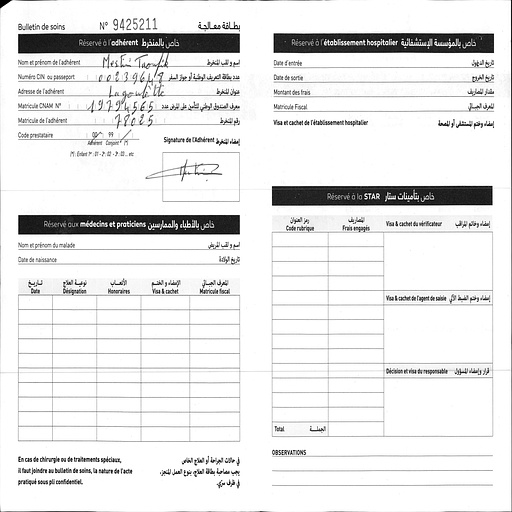 Bulletin de soins N° 9425211 بطاقة معالجة
Réservé à l'adhérent خاص بالمنخرط
Nom et prénom de l'adhérent Mestiri Taoufik إسم و لقب المنخرط
Numéro CIN ou passeport 00239648 عدد بطاقة التعريف الوطنية أو جواز السفر
Adresse de l'adhérent Lagoulette عنوان المنخرط
Matricule CNAM N° 19794565 معرف الصندوق الوطني للتأمين على المرض عدد
Matricule de l'adhérent 78025 رقم المنخرط
Code prestataire 00 99 (*)
Adhérent Conjoint
(*) : Enfant 1er : 01 - 2e : 02 - 3e : 03 ... etc
Signature de l'Adhérent إمضاء المنخرط
Réservé aux médecins et praticiens خاص بالأطباء والممارسين
Nom et prénom du malade إسم و لقب المريض
Date de naissance تاريخ الولادة
تاريخ نوعية العلاج الأتعاب الإمضاء و الختم المعرف الجبائي
Date Désignation Honoraires Visa & cachet Matricule fiscal
En cas de chirurgie ou de traitements spéciaux,
il faut joindre au bulletin de soins, la nature de l'acte
pratiqué sous pli confidentiel.
في حالات الجراحة أو العلاج الخاص
يجب مصاحبة بطاقة العلاج، بنوع العمل المنجز،
في ظرف سري.
Réservé à l'établissement hospitalier خاص بالمؤسسة الإستشفائية
Date d'entrée تاريخ الدخول
Date de sortie تاريخ الخروج
Montant des frais مقدار المصاريف
Matricule Fiscal المعرف الجبائي
Visa et cachet de l'établissement hospitalier إمضاء وختم المستشفى أو المصحة
Réservé à la STAR خاص بتأمينات ستار
رمز العنوان المصاريف
Code rubrique Frais engagés
Visa & cachet du vérificateur إمضاء وخاتم المراقب
Visa & cachet de l'agent de saisie إمضاء وختم الضبط الآلي
Décision et visa du responsable قرار وإمضاء المسؤول
Total الجملة
OBSERVATIONS